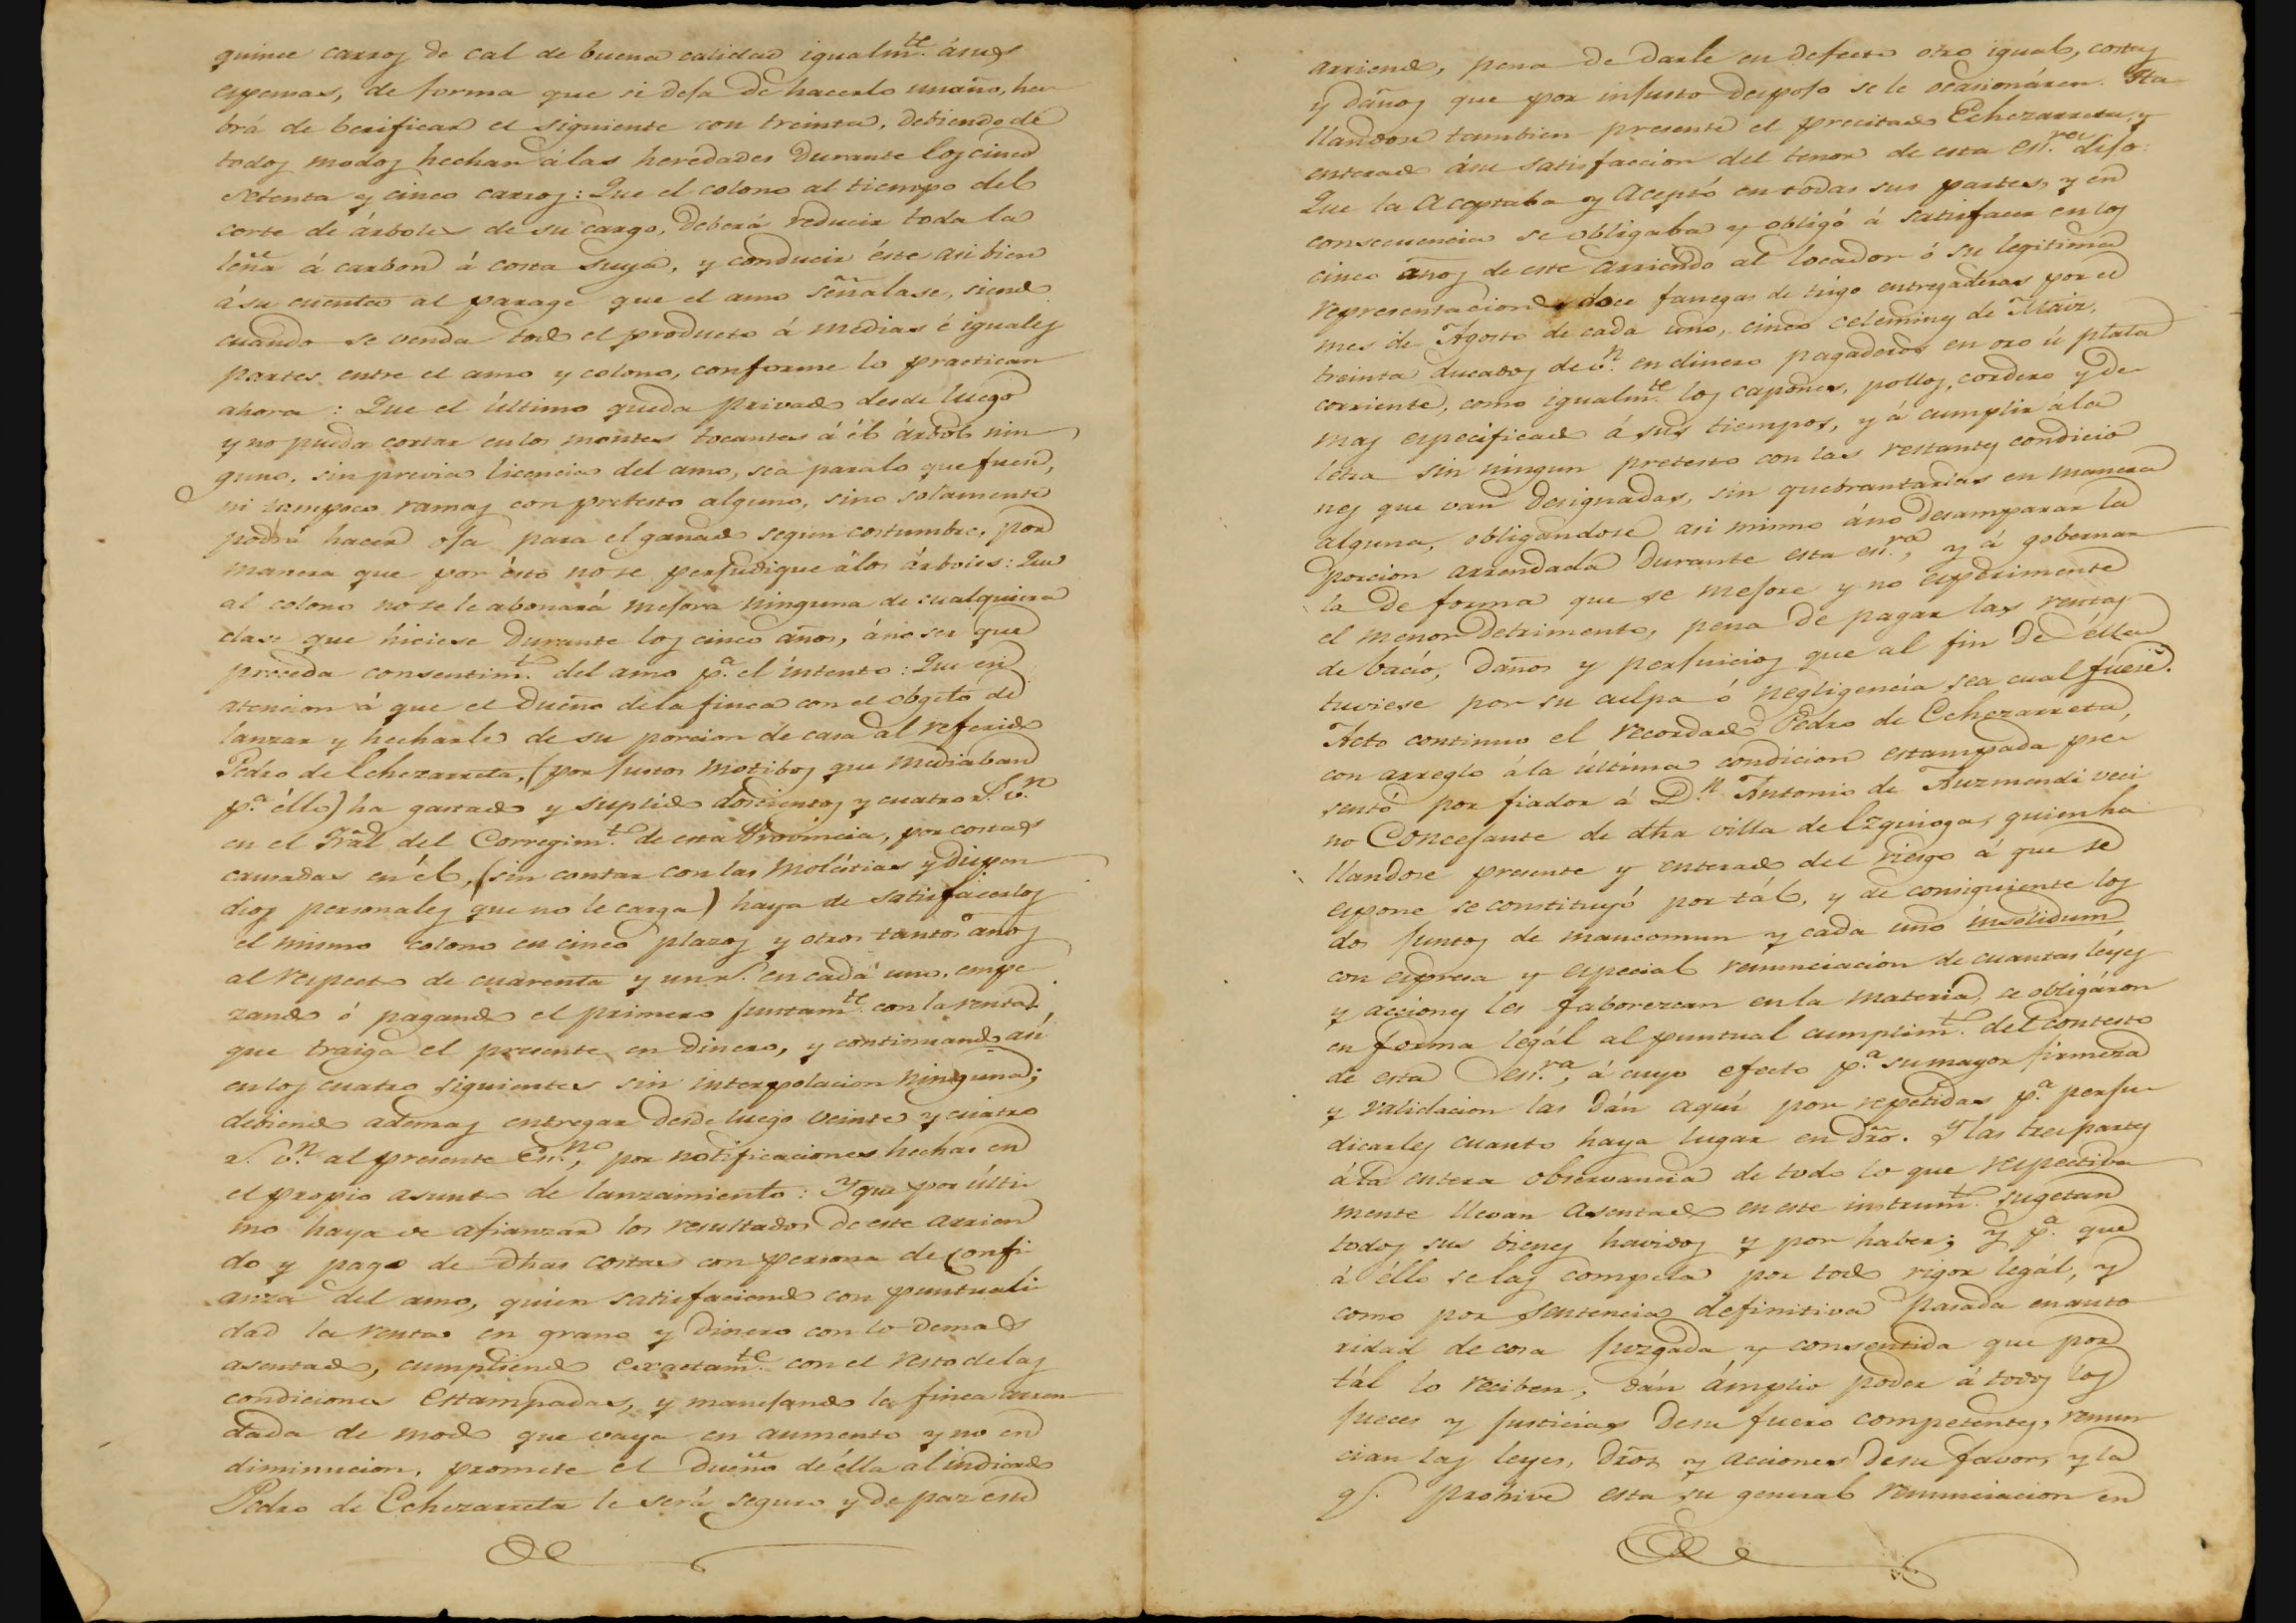 quince carros de cal de buena calidad igualm.te á sus
expensas, de forma que si deja de hacerlo un año, ha
brá de berificar el siguiente con treinta, debiendo de
todos modos hechar á las heredades durante los cinco
setenta y cinco carros: Que el colono al tiempo del
corte de árboles de su cargo, deberá reducir toda la
leña á carbon á costa suya, y conducir éste asi bien
á su cuenta al parage que el amo señalase, siendo
cuando se venda todo el producto á medias é iguales
partes entre el amo y colono, conforme lo practican
ahora: Que el último queda privado desde luego
y no pueda cortar en los montes tocantes á él árbol nin
guno, sin previa licencia del amo, sea para lo que fuere,
ni tampoco ramas con pretesto alguno, sino solamente
podrá hacer oja para el ganado segun costumbre, por
manera que por ésto no se perjudique á los árboles: Que
al colono no se le abonará mejora ninguna de cualquiera
clase que hiciese durante los cinco años, á no ser que
preceda consentim.to del amo p.a el intento: Que en
atencion á que el Dueño de la finca con el obgeto de
lánzar y hecharle de su porcion de casa al referido
Pedro de Echezarreta, (por justos motibos que mediaban
p.a éllo) ha gastado y suplido doscientos y cuatro r.s v.n
en el Trãl del Corregim.to de esta Provincia, por costas
causadas en él, (sin contar con las moléstias y dispen
dios personales que no le carga) haya de satisfacerlos
el mismo colono en cinco plazos y otros tantos años
al respecto de cuarenta y un r.s en cada uno, empe
zando ó pagando el primero juntam.te con la renta
que traiga el presente en dinero, y continuando así
en los cuatro siguientes sin interpolacion ninguna;
debiendo ademas entregar desde luego veinte y cuatro
r.s v.n al presente Es.no, por notificaciones hechas en
el propio asunto de lanzamiento: Y que por últi
mo haya de afianzar los resultados de este arrien
do y pago de dhas costas con persona de confi
anza del amo, quien satisfaciendo con puntuali
dad la renta en grano y dinero con lo demas
asentado, cumpliendo exactam.te con el resto de las
condiciones estampadas, y manejando la finca arren
dada de modo que vaya en aumento y no en
diminucion, promete el dueño de élla al indicado
Pedro de Echezarreta le será seguro y de paz este
arriendo, pena de darle en defecto otro igual, costas
y daños que por injusto despojo se le ocasionáren. Ha
llandose tambien presente el precitado Echezarreta, y
enterado á su satisfaccion del tenor de esta es.ra dijo:
Que la aceptaba y aceptó en todas sus partes, y en
consecuencia se obligaba y obligó á satisfacer en los
cinco años de este arriendo al locador ó su legitima
representacion doce fanegas de trigo entregaderas por el
mes de Agosto de cada uno, cinco celemines de Maiz,
treinta ducados de v.n en dinero pagaderos en oro ú plata
corriente, como igualm.te los capones, pollos, cordero y de
mas especificado á sus tiempos, y á cumplir á la
letra sin ningun pretesto con las restantes condicio
nes que van designadas, sin quebrantarlas en manera
alguna, obligandose asi mismo á no desamparar la
porcion arrendada durante esta es.ra, y á gobernar
la de forma que se mejore y no experimente
el menor detrimento, pena de pagar las rentas
de bacío, daños y perjuicios que al fin de élla
tuviese por su culpa ó negligencia sea cual fuese.
Acto continuo el recordado Pedro de Echezarreta,
con arreglo á la última condicion estampada pre
sentó por fiador á D.n Antonio de Auzmendi veci
no Concejante de dha villa de Ezquioga, quien ha
llandose presente y enterado del riesgo á que se
expone se constituyó por tál, y de consiguiente los
dos juntos de mancomun y cada uno insolidum
con expresa y especial renunciacion de cuantas leyes
y acciones les faborezcan en la materia, se obligáron
en forma legál al puntual cumplim.to del contesto
de esta es.ra, á cuyo efecto p.a su mayor firmeza
y validacion las dán aquí por repetidas p.a perju
dicarles cuanto haya lugar en dro. Y las tres partes
á la entera observancia de todo lo que respectiva
mente llevan asentado en este instrum.to sugetan
todos sus bienes havidos y por haber; y p.a que
á éllo se las compela por todo rigor legál, y
como por sentencia definitiva pasada en auto
ridad de cosa juzgada y consentida que por
tál lo reciben, dán ámplio poder á todos los
jueces y justicias de su fuero competentes, renun
cian las leyes, dros y acciones de su favor, y la
q.e prohive esta su general renunciacion en